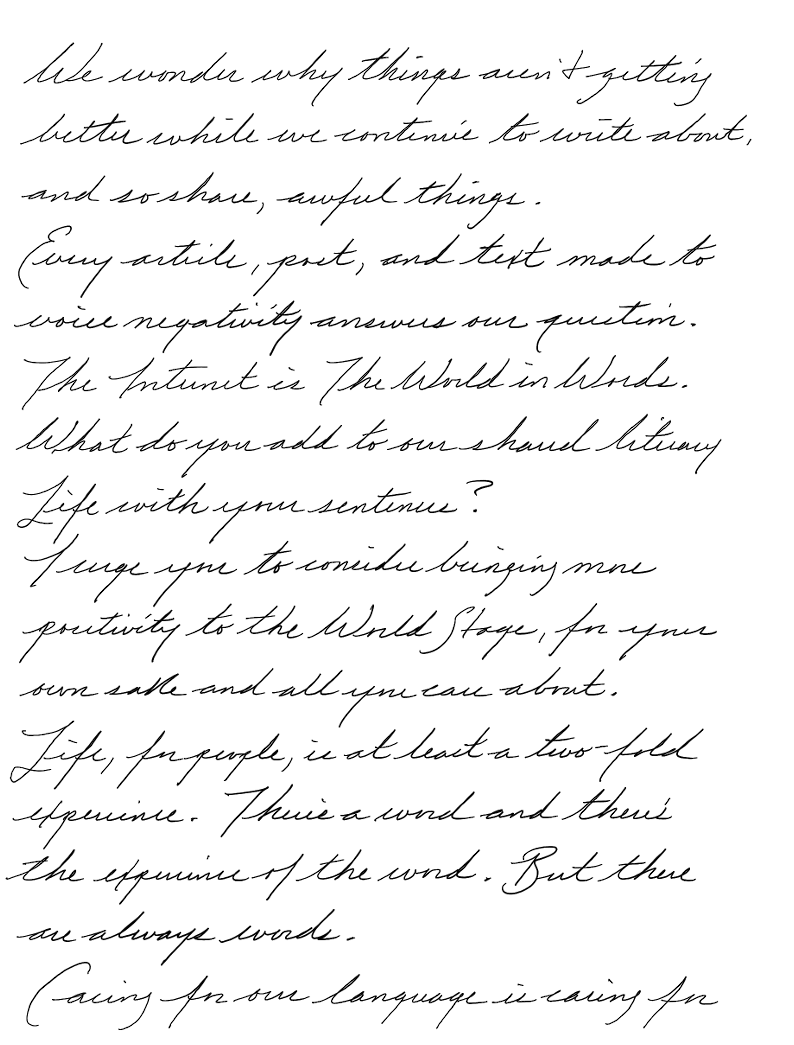 We wonder why things aren't getting
better while we continue to write about,
and so share, awful things.
Every article, post, and text made to
voice negativity answers our question.
The Internet is The World in Words.
What do you add to our shared literary
Life with your sentences?
I urge you to consider bringing more
positivity to the World Stage, for your
own sake and all you care about.
Life, for people, is at least a two-fold
experience. There's a word and there's
the experience of the word. But there
are always words.
Caring for our language is caring for